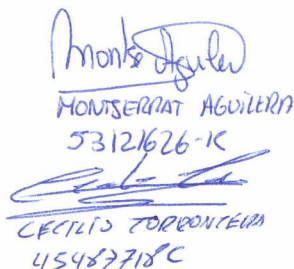 Montse Aguiler
MONTSERRAT AGUILERA
53121626-K
CECILIO TORRONTERA
45487718C